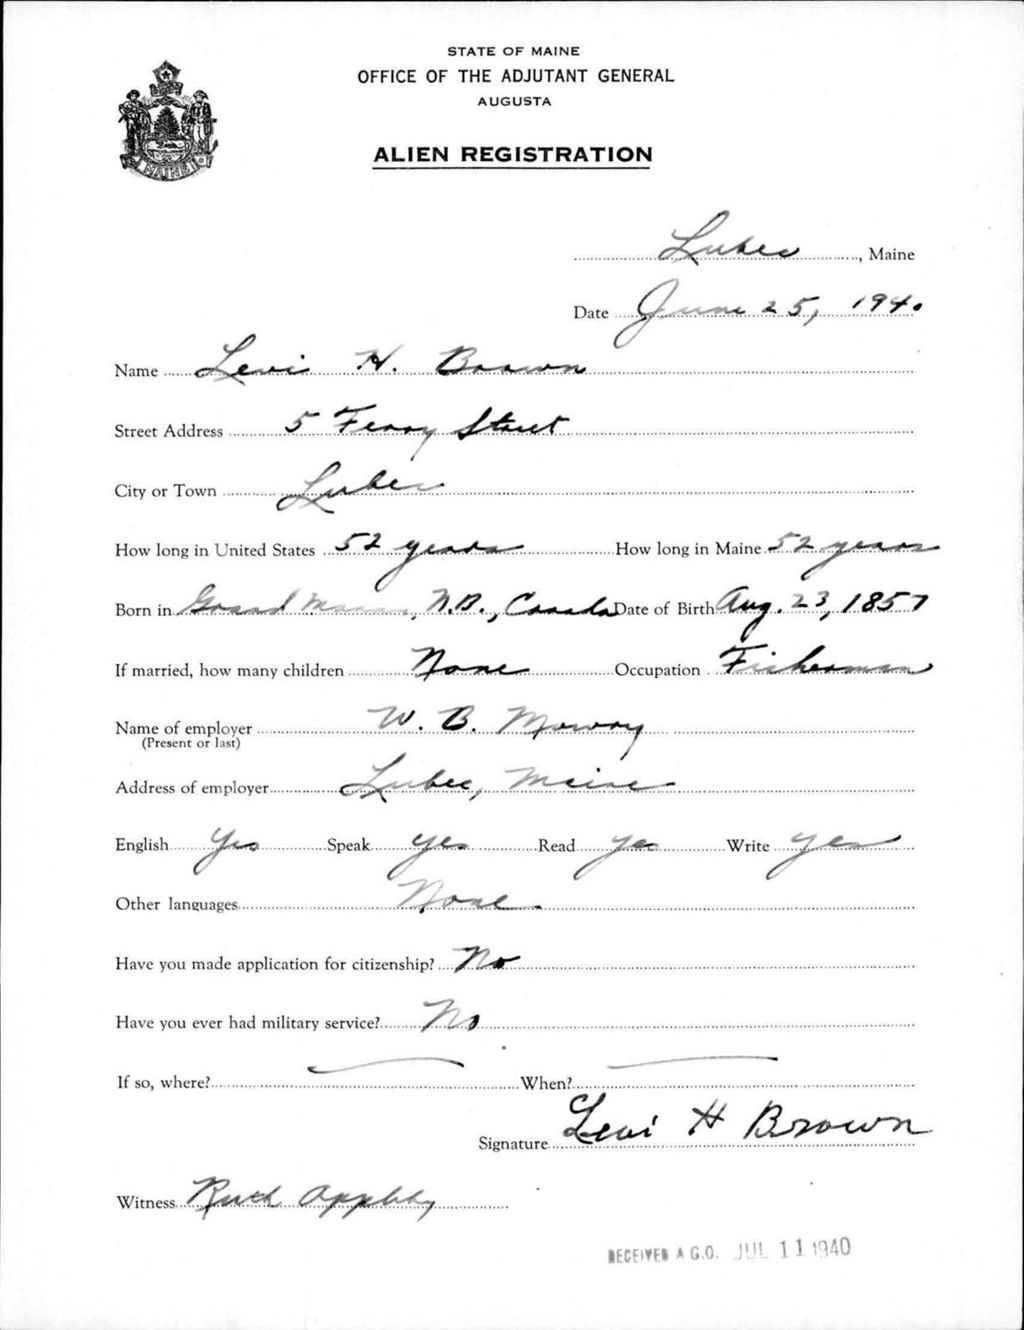 STATE OF MAINE
OFFICE OF THE ADJUTANT GENERAL
AUGUSTA
ALIEN REGISTRATION
MAINE
Lubec, Maine
Date June 25, 1940
Name Levi H. Brown
Street Address 5 Ferry Street
City or Town Lubec
How long in United States 52 years How long in Maine 52 years
Born in Grand Manan, N.B., Canada Date of Birth Aug. 23, 1857
If married, how many children None Occupation Fisherman
Name of employer W. B. Mowry
(Present or last)
Address of employer Lubec, Maine
English Yes Speak yes Read yes Write yes
Other languages None.
Have you made application for citizenship? No
Have you ever had military service? No
If so, where? — When? —
Signature Levi H Brown
Witness Ruth Appleby
RECEIVED A.G.O. JUL 11 1940